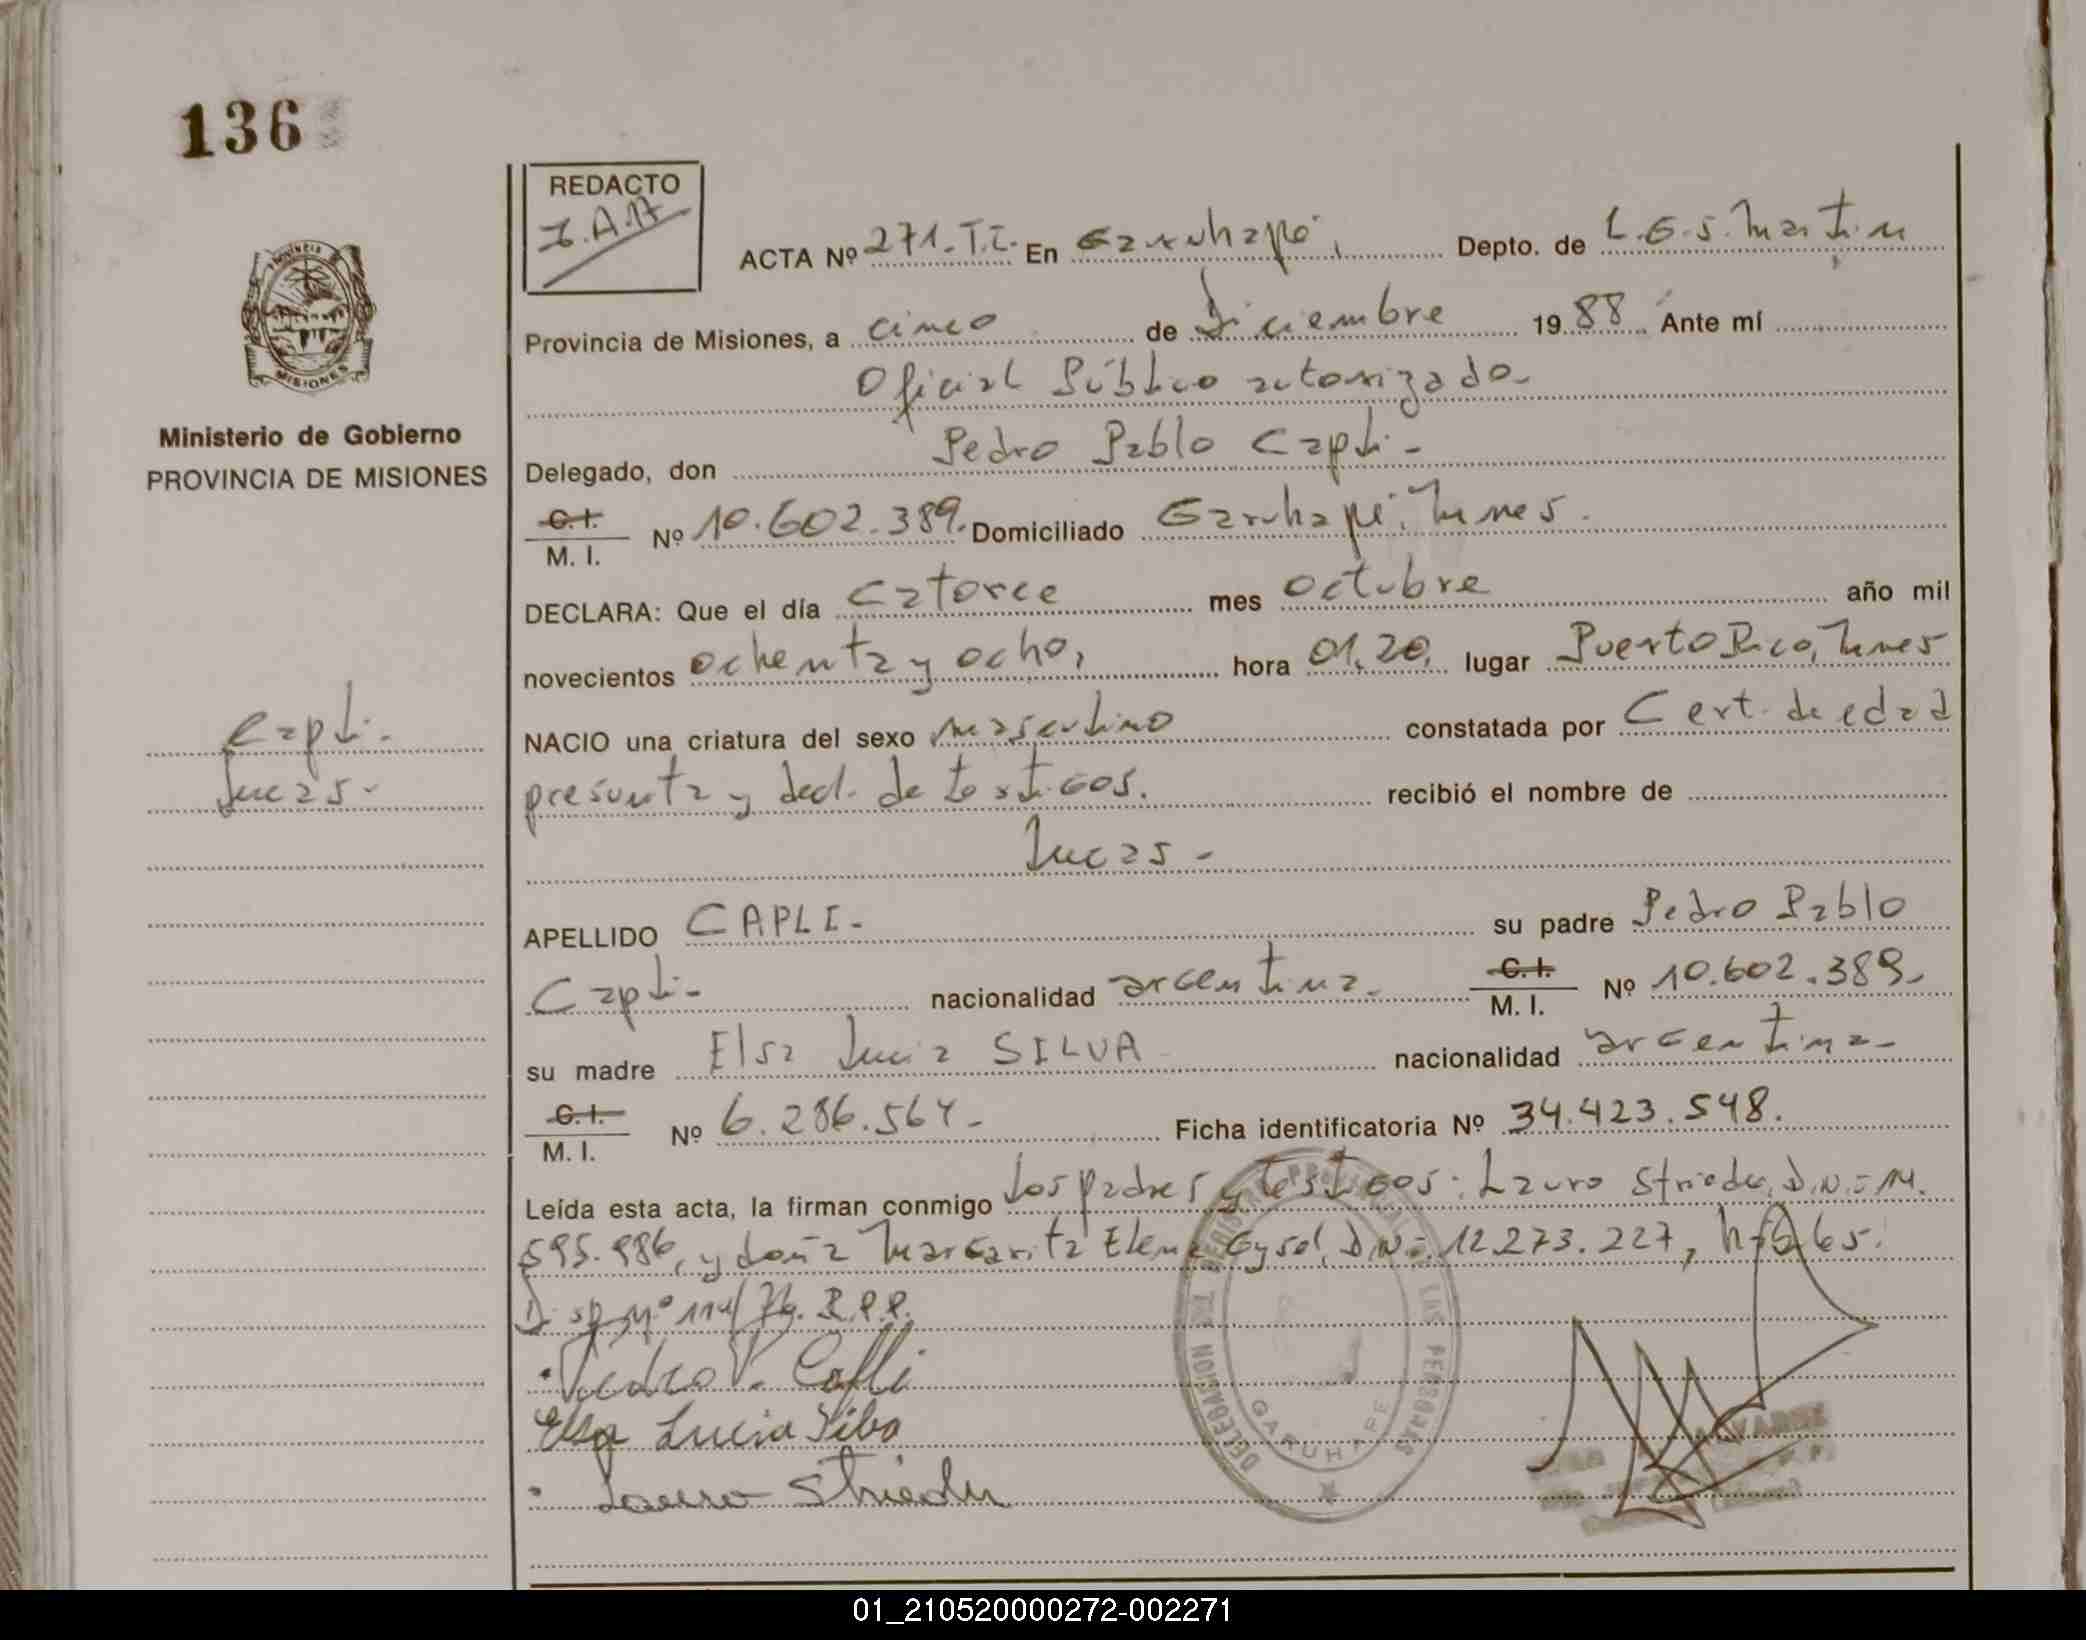 136
REDACTO
I.A.M
ACTA Nº 271.T.I. En Garuhapé, Depto. de L.G.S. Martín
PROVINCIA
MISIONES
Provincia de Misiones, a cinco de Diciembre 1988. Ante mí
Oficial Público autorizado.
Ministerio de Gobierno
PROVINCIA DE MISIONES
Delegado, don Pedro Pablo Capli -
C.I. / M. I. Nº 10.602.389. Domiciliado Garuhapé,
DECLARA: Que el día catorce mes octubre año mil
novecientos ochenta y ocho, hora 01,20, lugar Puerto Rico,
Capli.
NACIO una criatura del sexo masculino constatada por Cert. de edad
Lucas -
presunta y decl. de testigos. recibió el nombre de
Lucas -
APELLIDO CAPLI - su padre Pedro Pablo
Capli - nacionalidad argentina. C.I. / M. I. Nº 10.602.389.
su madre Elsa Lucia SILVA nacionalidad argentina -
C.I. / M. I. Nº 6.286.564 - Ficha identificatoria Nº 34.423.548.
Leída esta acta, la firman conmigo los padres y testigos: Lauro Strieder, D.N.I. M.
595.986, y doña Margarita Elena D.N.I. 12.273.227, hábiles.
Disp. Nº 114/79. R.P.P.
Pedro P. Capli
Elsa Lucia Silva
Lauro Strieder
DELEGACION DEL REGISTRO PROVINCIAL DE LAS PERSONAS
GARUHAPE
01_210520000272-002271